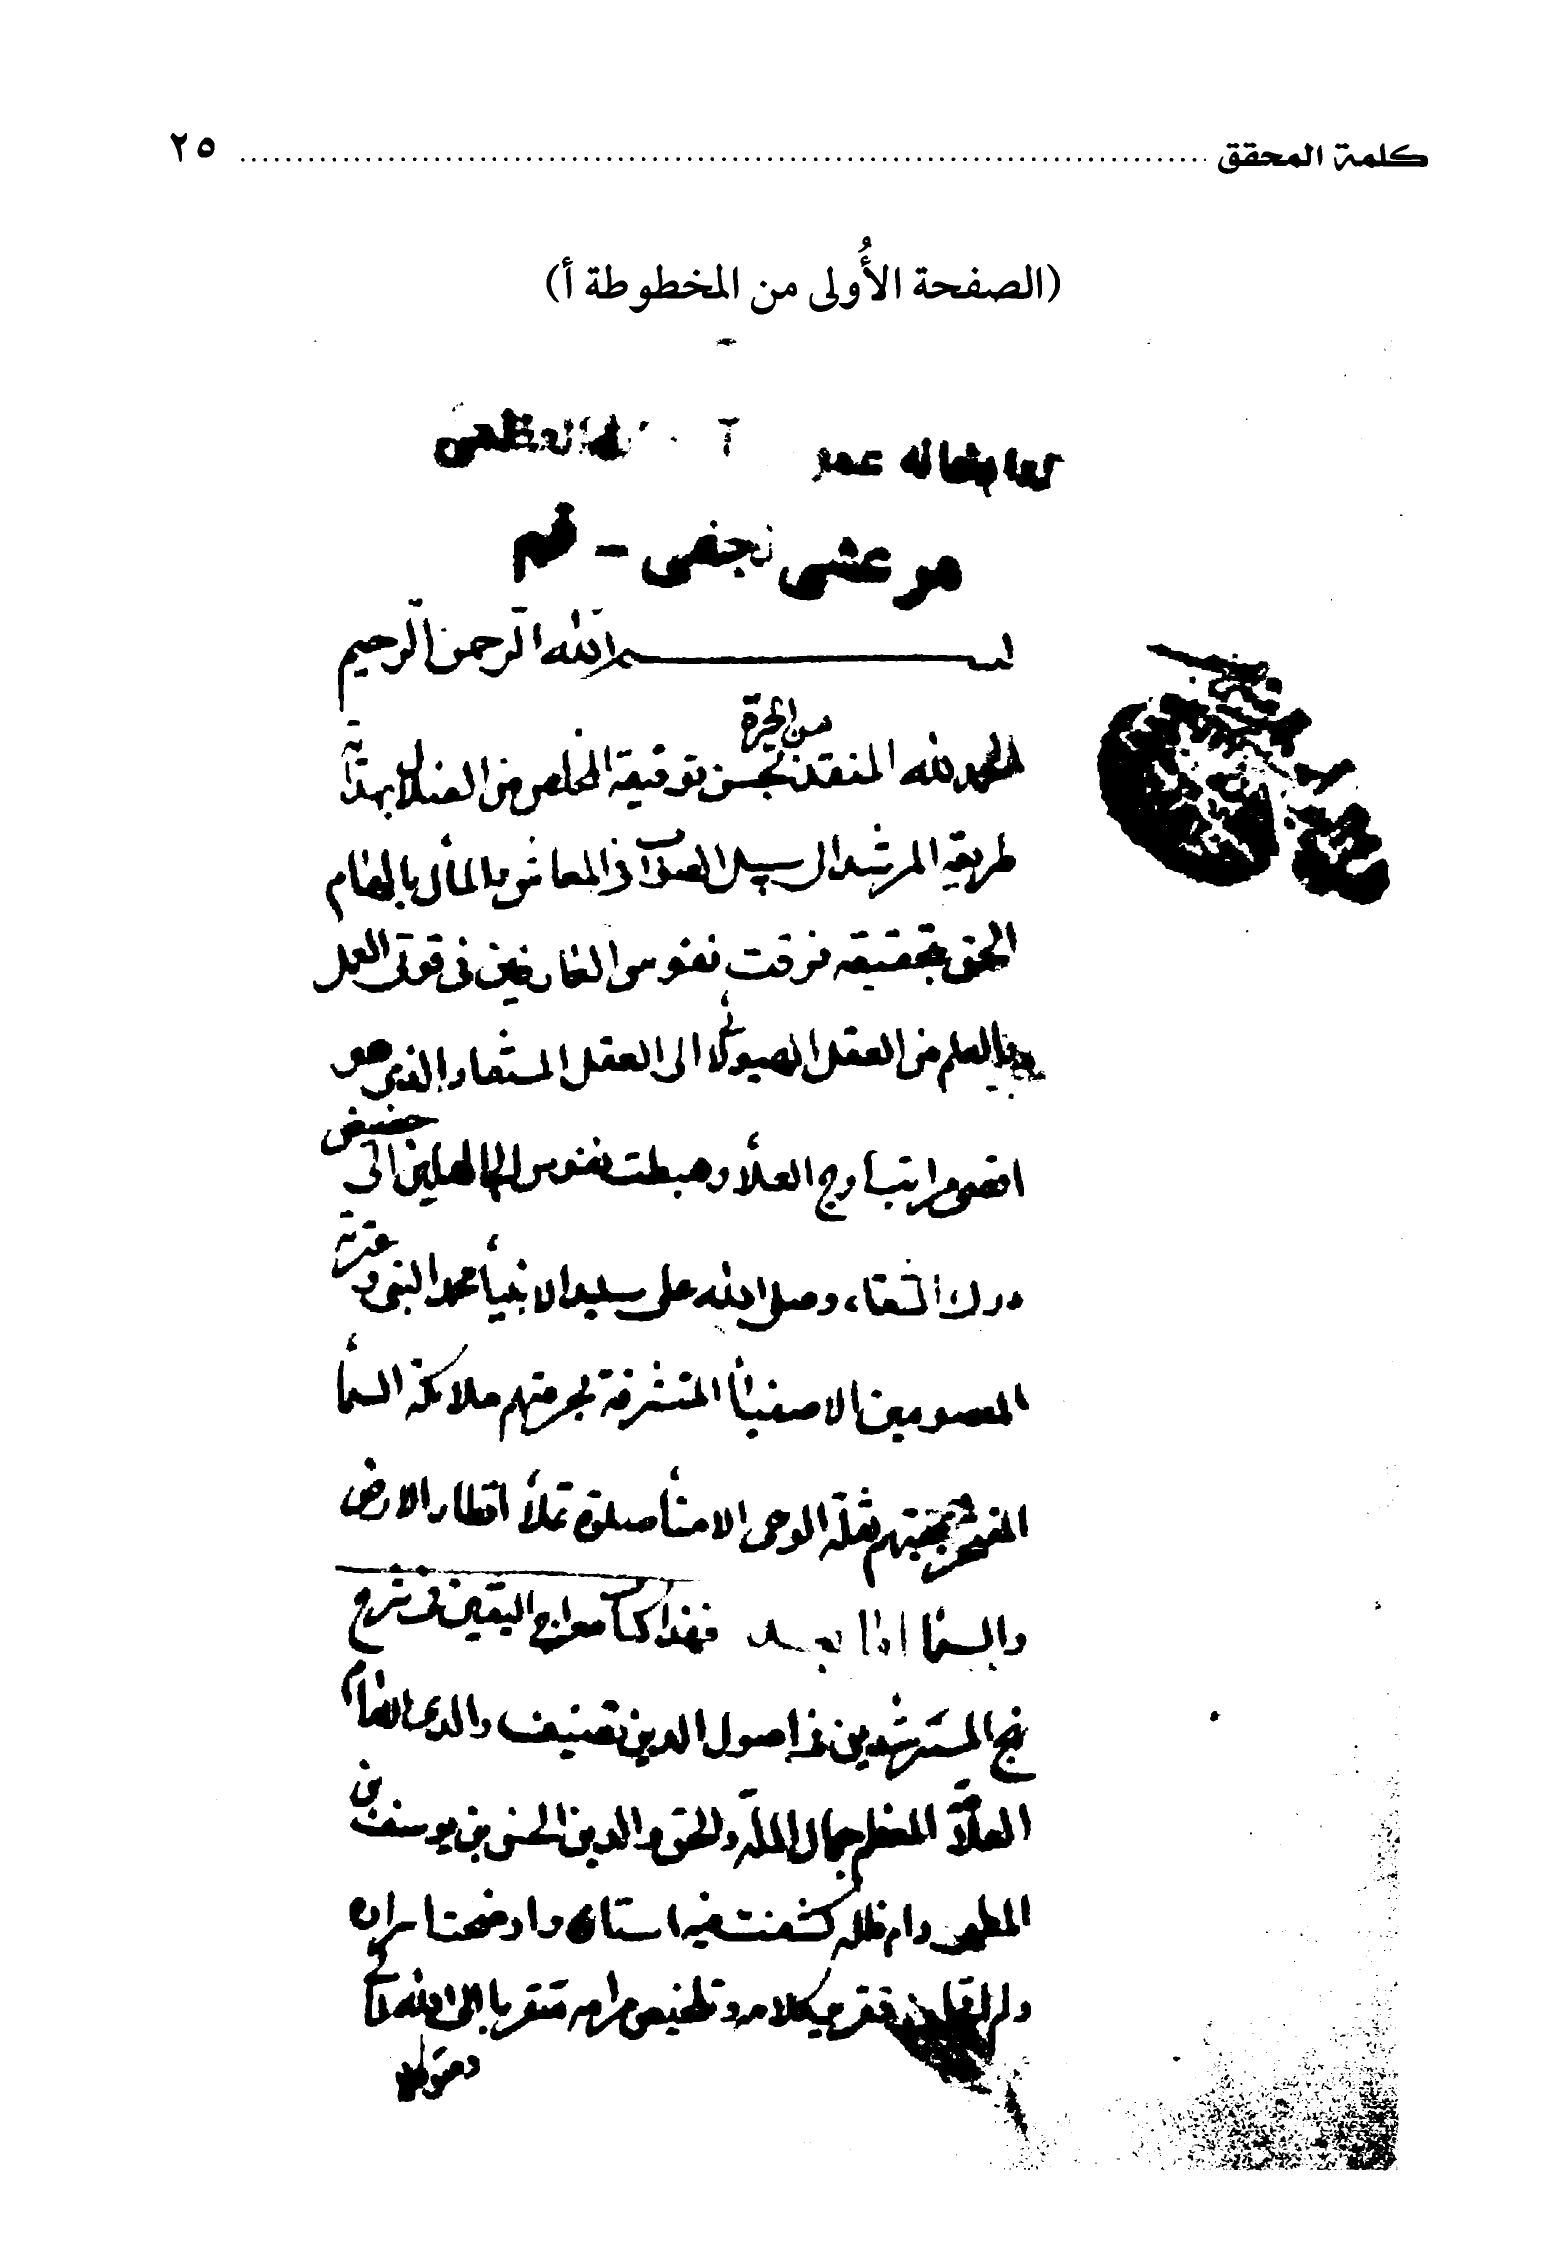 كلمة المحقق ........................................ ٢٥
(الصفحة الأُولى من المخطوطة أ)
كتابخانه عمو آ العظمى
مرعشى نجفى - قم
بسم الله الرحمن الرحيم
من الحيرة
الحمد لله المنقذ بحسن توفيقه المخلص من الضلال بهداية
طريقه المرشد الى سبيل الصواب فى المعاش والمآل بالهام
الحق بتحقيقه فرقت نفوس العارفين فى قوتى العمل
والعلم من العقل الهيولانى الى العقل المستفاد الذى هو
اقصى مراتب اوج العلاء وهبطت نفوس الجاهلين الى حضيض
درك الشقاء، وصلى الله على سيد الانبياء محمد النبى وعترته
المعصومين الاصفياء المتشرفة بحرمتهم ملائكة السماء
المفتخر بمحبتهم نقلة الوحى الامناء صلوة تملأ اقطار الارض
والسماء اما بعد فهذا كتاب معراج اليقين فى شرح
نهج المسترشدين فى اصول الدين تصنيف والدى الامام
العلامة المعظم جمال الملة والحق والدين الحسن بن يوسف بن
المطهر دام ظله كشفت فيه استاره واوضحت اسراره
ولم تقرير كلامه وتلخيص مرامه متقربا الى الله تعالى